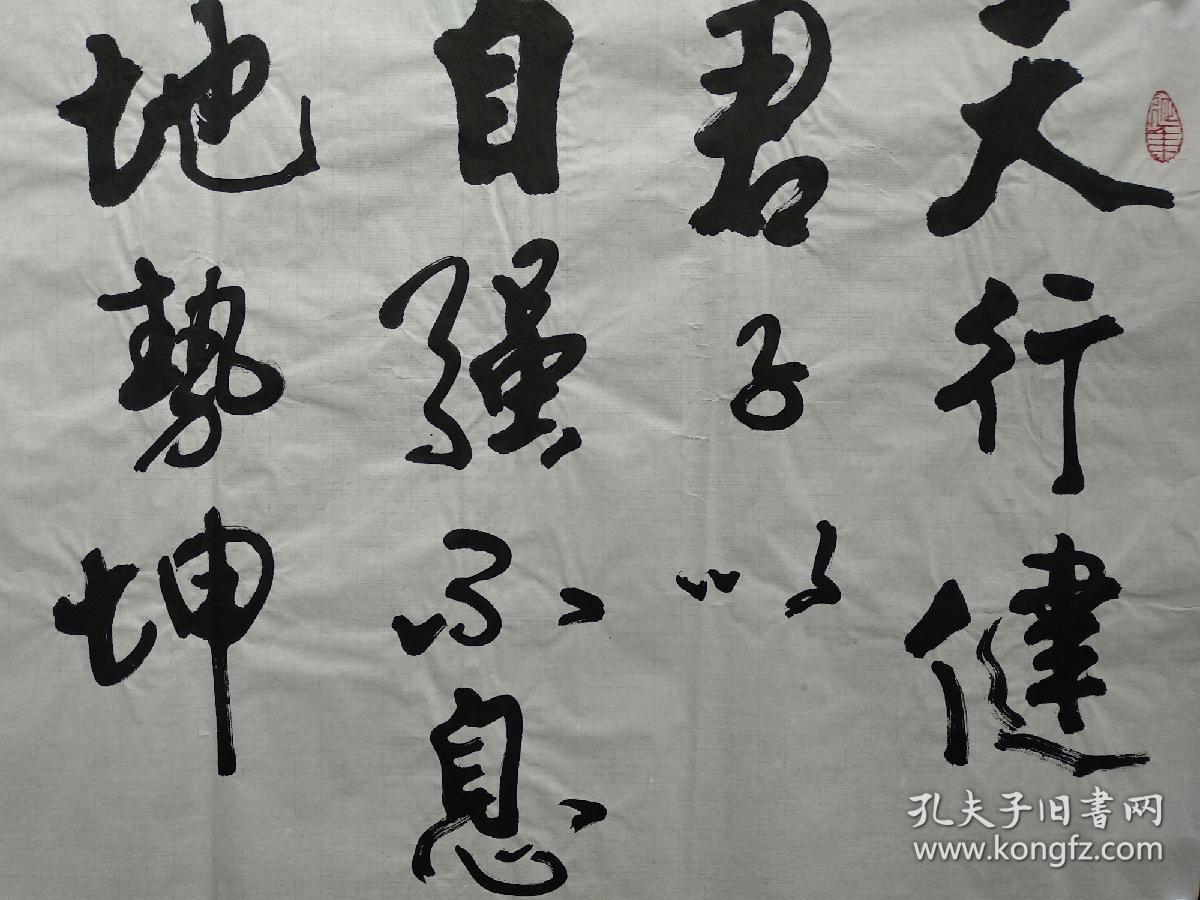 天行健
君子以
自强不息
地势坤
孔夫子旧書网
www.kongfz.com